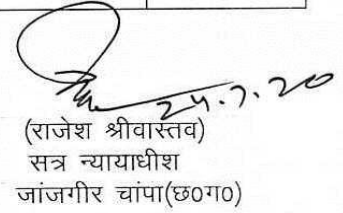 24.7.20
(राजेश श्रीवास्तव)
सत्र न्यायाधीश
जांजगीर चांपा(छ0ग0)